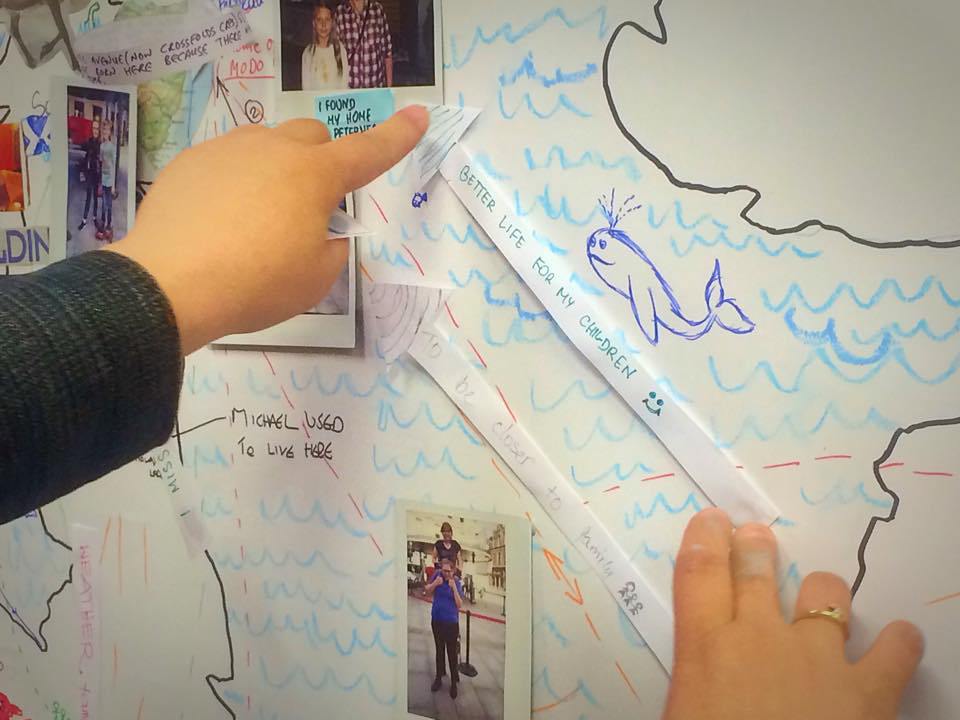 AVENUE (NOW CROSSFOLDS
BORN HERE BECAUSE THERE
MODO
2
I FOUND
MY HOME
LDIN
BETTER LIFE FOR MY CHILDREN
To be closer to family
MICHAEL USED
TO LIVE HERE
MISS
WEATHER,